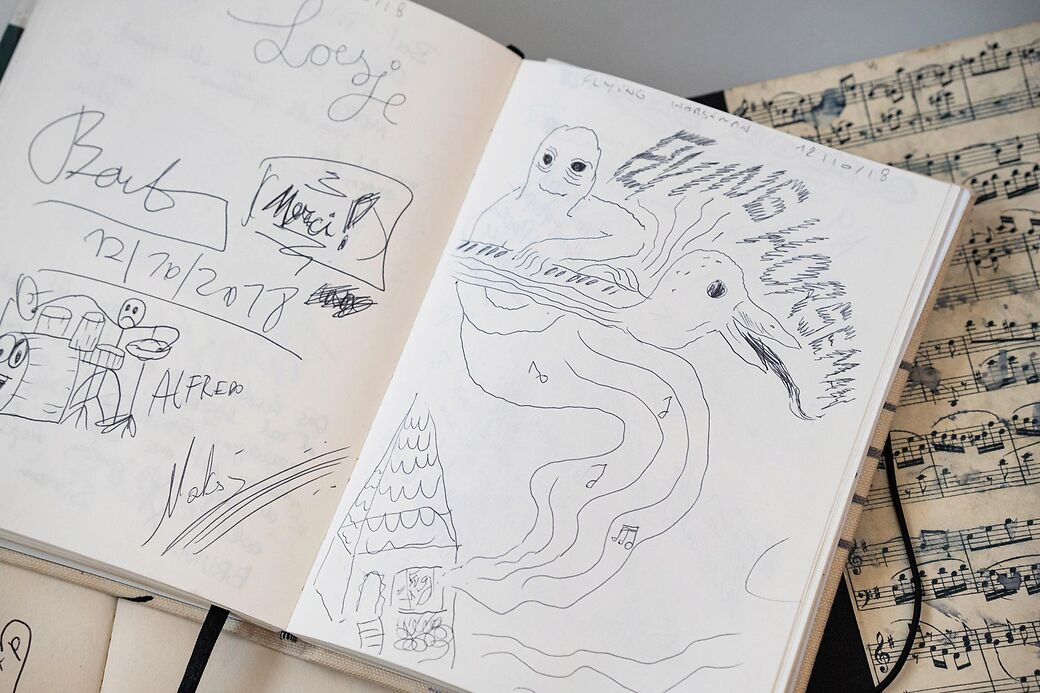 Loesje
Bart
Merci!
12/10/2018
ALFREDO
FLYING HORSEMAN
12/10/18
FLYING HORSEMAN